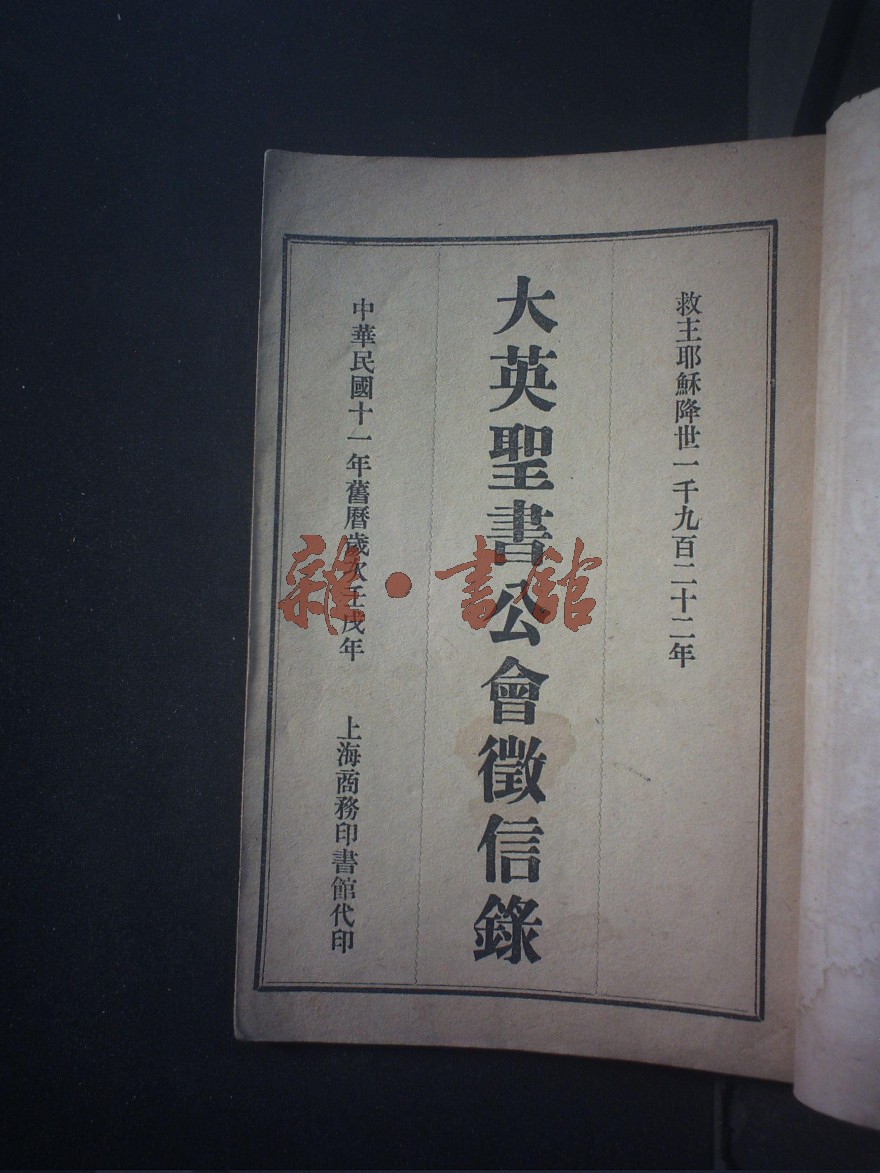 救主耶穌降世一千九百二十二年
大英聖書公會徵信錄
中華民國十一年舊曆歲次壬戌年
上海商務印書館代印
雜·書館